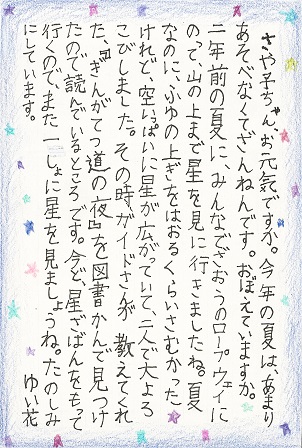 さや子ちゃん、お元気ですか。今年の夏は、あまり
あそべなくてざんねんです。おぼえていますか。
二年前の夏に、みんなでざおうのロープウェイに
のって、山の上まで星を見に行きましたね。夏
なのに、ふゆの上ぎをはおるくらいさむかった
けれど、空いっぱいに星が広がっていて、二人で大よろ
こびしました。その時ガイドさんが教えてくれ
た、『ぎんがてつ道の夜』を図書かんで見つけ
たので読んでいるところです。今ど、星ざばんをもって
行くので、また一しょに星を見ましょうね。たのしみ
にしています。
ゆい花